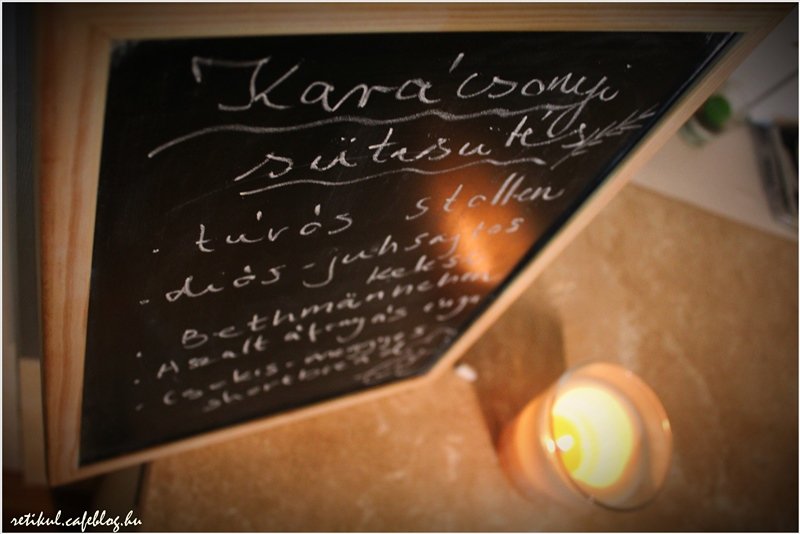 Karácsonyi
sütisütés
. túrós stollen
. diós-juhsajtos
keksz
. Bethmännchen
. Aszalt áfonyás
. Csokis-meggyes
shortbread
retikul.cafeblog.hu